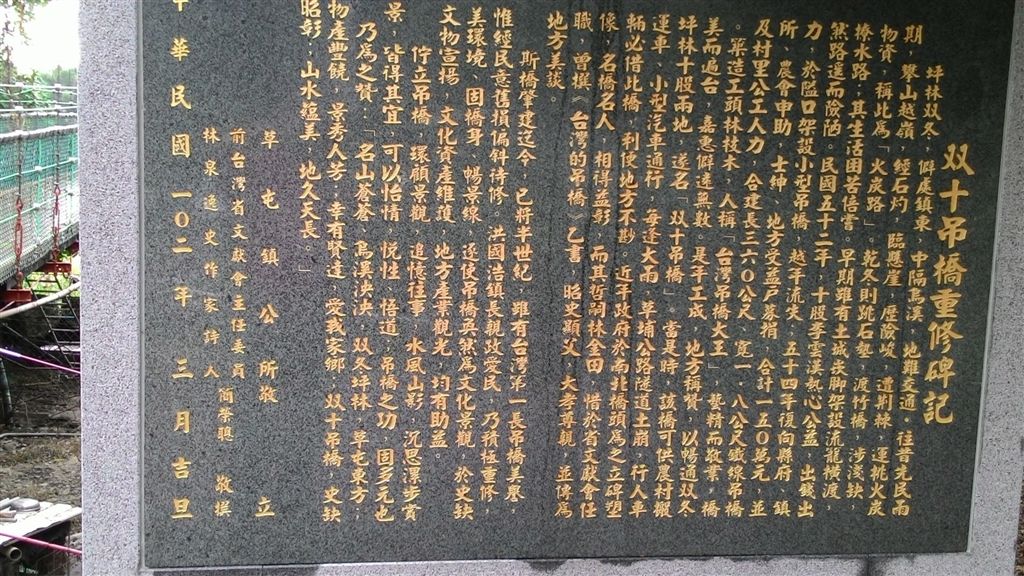 双十吊橋重修碑記
坪林双冬,僻處鎮東,中隔烏溪,地難交通。往昔先民兩
期,攀山越嶺,經石灼,臨懸崖,歷險峻,遭荊棘,運桃火炭
物資,稱此為「火炭路」。乾冬則跳石墊,渡竹橋,涉淺缺
椿水路;其生活困苦倍嘗。早期雖有土城床腳架設流籠橫渡,
然路遠而險陋。民國五十二年,十股李雲漢熱心公益,出錢出
力,於隘口架設小型吊橋,越年流失,五十四年復向縣府、鎮
所、農會申助,士紳、地方受益戶募捐,合計一五0萬元,並
及村里公工人力,合建長三六0公尺,寬一.八公尺鐵線吊橋
。築造工頭林枝木,人稱「台灣吊橋大王」,藝精而敬業,橋
美而遍台,嘉惠僻遠無數,是年工成,地方稱贊,以暢通双冬
坪林十股兩地,遂名「双十吊橋」。當是時,該橋可供農村搬
運車、小型汽車通行,每逢大雨,草埔公路隧道土崩,行人車
輛必借此橋,利便地方不尠。近年政府於南北橋頭為之立碑塑
像,名橋名人,相得益彰,而其哲嗣林金田,惜於省文獻會任
職,曾撰《台灣的吊橋》乙書,昭史顯父,大孝尊親,並傳為
地方美談。
斯橋肇建迄今,已將半世紀,雖有台灣第一長吊橋美譽,
惟經民意舊損偏斜待修。洪國浩鎮長親政愛民,乃積極重修,
美環境、固橋身、暢景線,遂使吊橋煥然為文化景觀,於史跡
文物宣揚,文化資產維護,地方產業觀光,均有助益。
佇立吊橋,環顧景觀,追憶往事,水風山影,沉思漂步賞
景,皆得其宜,可以怡情,悅性,悟道,吊橋之功,固多元也
乃為之贊:「名山蒼蒼,烏溪泱泱,双冬坪林,草屯東方,
物產豐饒,景秀人芳,幸有賢達,愛我家鄉,双十吊橋,史跡
昭彰,山水蘊美,地久天長。」
草屯鎮公所敬立
前台灣省文獻會主任委員
林泉逸史作家詩人
簡榮聰 敬撰
中華民國一0二年三月吉旦